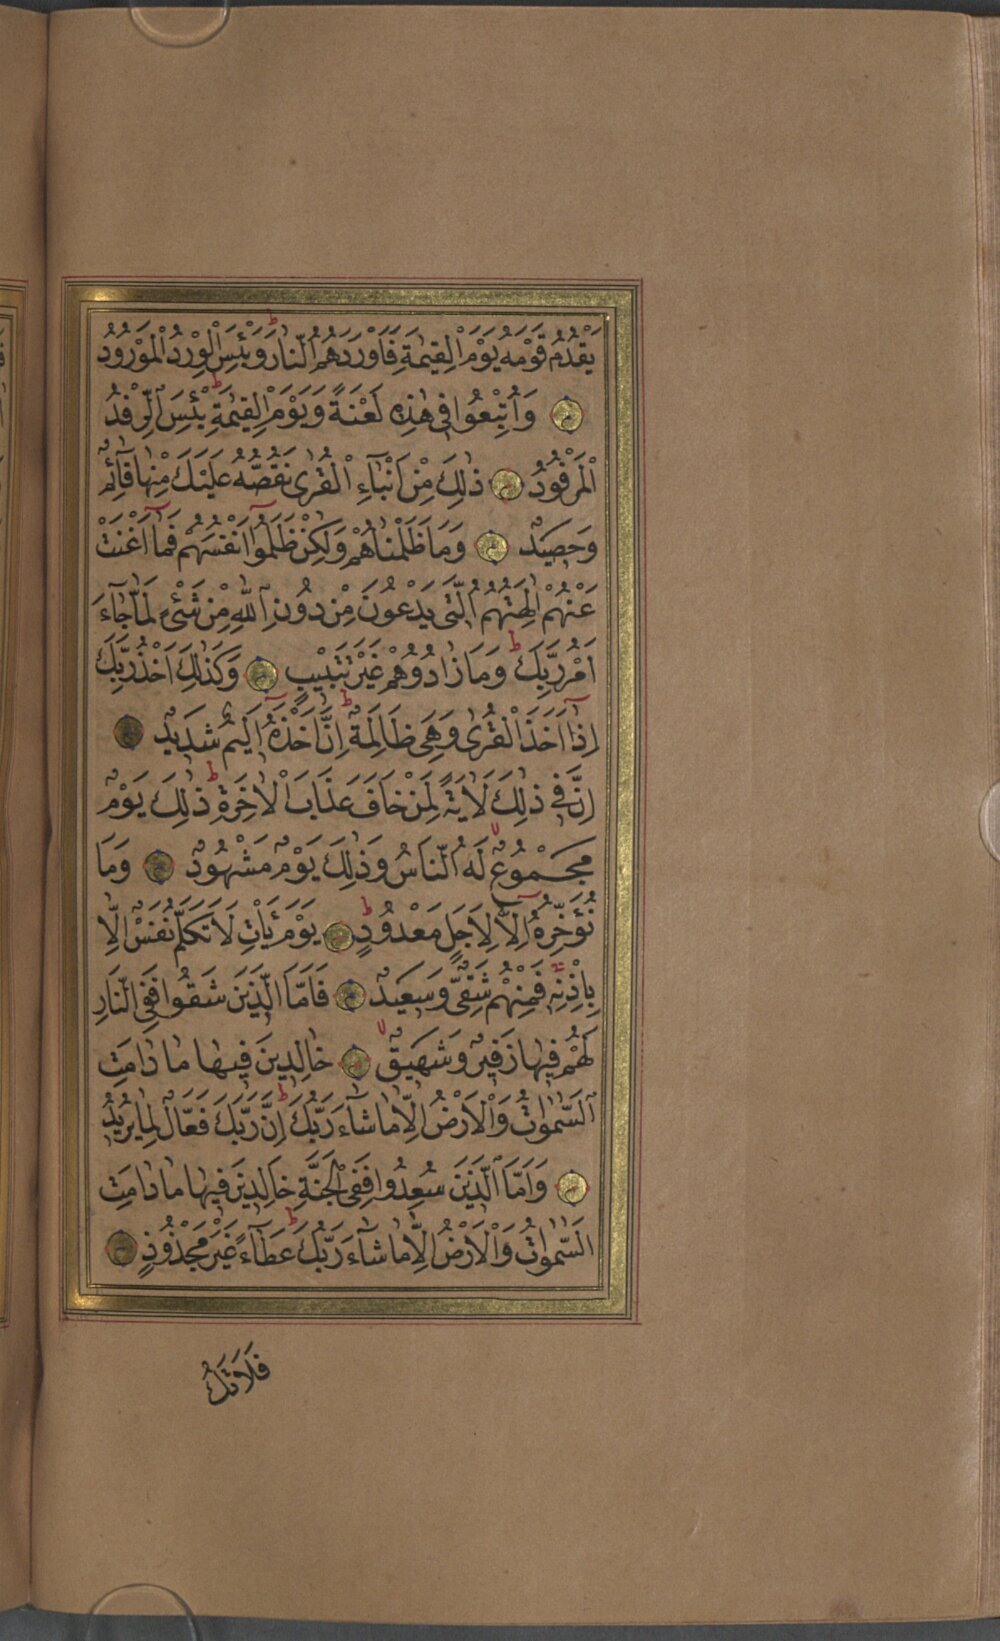 يَقْدُمُ قَوْمَهُ يَوْمَ الْقِيٰمَةِ فَاَوْرَدَهُمُ النَّارَ وَبِئْسَ الْوِرْدُ الْمَوْرُودُ
وَاُتْبِعُوا فِى هٰذِهِ لَعْنَةً وَيَوْمَ الْقِيٰمَةِ بِئْسَ الرِّفْدُ
الْمَرْفُودُ ذٰلِكَ مِنْ اَنْبَآءِ الْقُرٰى نَقُصُّهُ عَلَيْكَ مِنْهَا قَآئِمٌ
وَحَصِيدٌ وَمَا ظَلَمْنَاهُمْ وَلٰكِنْ ظَلَمُوا اَنْفُسَهُمْ فَمَا اَغْنَتْ
عَنْهُمْ اٰلِهَتُهُمُ الَّتِى يَدْعُونَ مِنْ دُونِ اللّٰهِ مِنْ شَىْءٍ لَمَّا جَآءَ
اَمْرُ رَبِّكَ وَمَا زَادُوهُمْ غَيْرَ تَتْبِيبٍ وَكَذٰلِكَ اَخْذُ رَبِّكَ
اِذَا اَخَذَ الْقُرٰى وَهِىَ ظَالِمَةٌ اِنَّ اَخْذَهُ اَلِيمٌ شَدِيدٌ
اِنَّ فِى ذٰلِكَ لَاٰيَةً لِمَنْ خَافَ عَذَابَ الْاٰخِرَةِ ذٰلِكَ يَوْمٌ
مَجْمُوعٌ لَهُ النَّاسُ وَذٰلِكَ يَوْمٌ مَشْهُودٌ وَمَا
نُؤَخِّرُهُ اِلَّا لِاَجَلٍ مَعْدُودٍ يَوْمَ يَأْتِ لَا تَكَلَّمُ نَفْسٌ اِلَّا
بِاِذْنِهِ فَمِنْهُمْ شَقِىٌّ وَسَعِيدٌ فَاَمَّا الَّذِينَ شَقُوا فَفِى النَّارِ
لَهُمْ فِيهَا زَفِيرٌ وَشَهِيقٌ خَالِدِينَ فِيهَا مَا دَامَتِ
السَّمٰوَاتُ وَالْاَرْضُ اِلَّا مَا شَآءَ رَبُّكَ اِنَّ رَبَّكَ فَعَّالٌ لِمَا يُرِيدُ
وَاَمَّا الَّذِينَ سُعِدُوا فَفِى الْجَنَّةِ خَالِدِينَ فِيهَا مَا دَامَتِ
السَّمٰوَاتُ وَالْاَرْضُ اِلَّا مَا شَآءَ رَبُّكَ عَطَآءً غَيْرَ مَجْذُوذٍ
فَلَا تَكُ